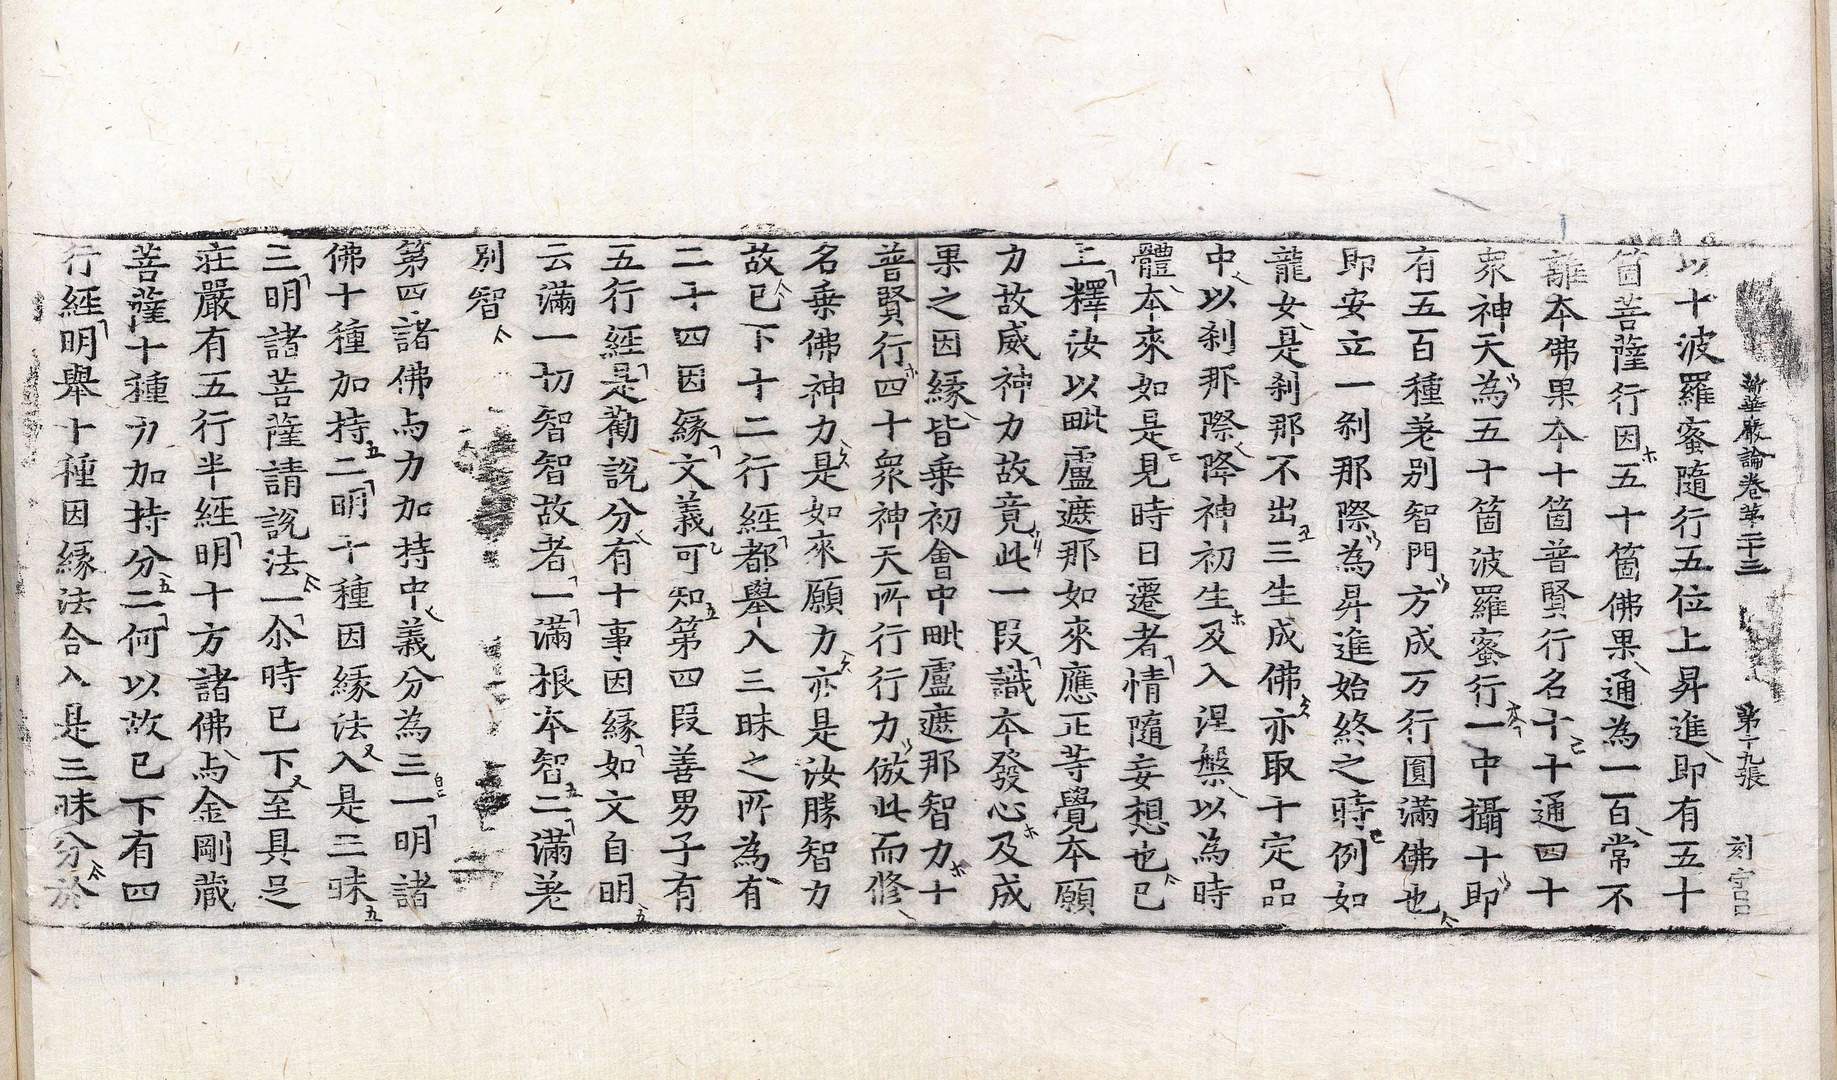 新華嚴論卷第二十三 第十九張 刻 宮
以十波羅蜜隨行五位上昇進即有五十
箇菩薩行因五十箇佛果通為一百常不
離本佛果本十箇普賢行名十十通四十
衆神天為五十箇波羅蜜行一中攝十即
有五百種差别智門方成万行圓滿佛也
即安立一剎那際為昇進始終之時例如
龍女是剎那不出三生成佛亦取十定品
中以剎那際降神初生及入涅槃以為時
體本來如是見時日遷者情隨妄想也已
上釋汝以毗盧遮那如來應正等覺本願
力故威神力故竟此一段識本發心及成
果之因緣皆乗初會中毗盧遮那智力十
普賢行四十衆神天所行行力倣此而修
名乗佛神力是如來願力亦是汝勝智力
故已下十二行經都舉入三昧之所為有
二十四因緣文義可知第四段善男子有
五行經是勸說分有十事因緣如文自明
云滿一切智智故者一滿根本智二滿差
別智
第四諸佛与力加持中義分為三一明諸
佛十種加持二明十種因緣法入是三昧
三明諸菩薩請說法一尒時已下至具足
莊嚴有五行半經明十方諸佛与金剛藏
菩薩十種力加持分二何以故已下有四
行經明舉十種因緣法合入是三昧分於